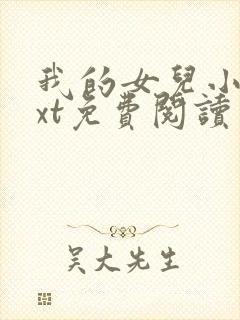 我的女兒小
xt免費閱讀
吴大先生